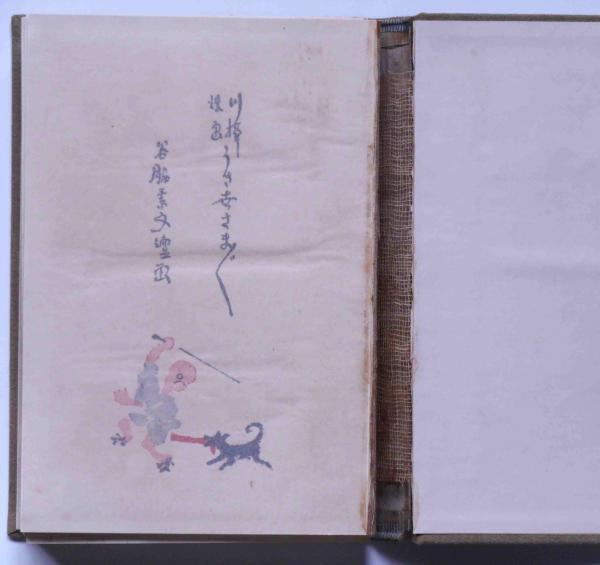 川柳
漫画
うき世さま〲
谷脇素文
画